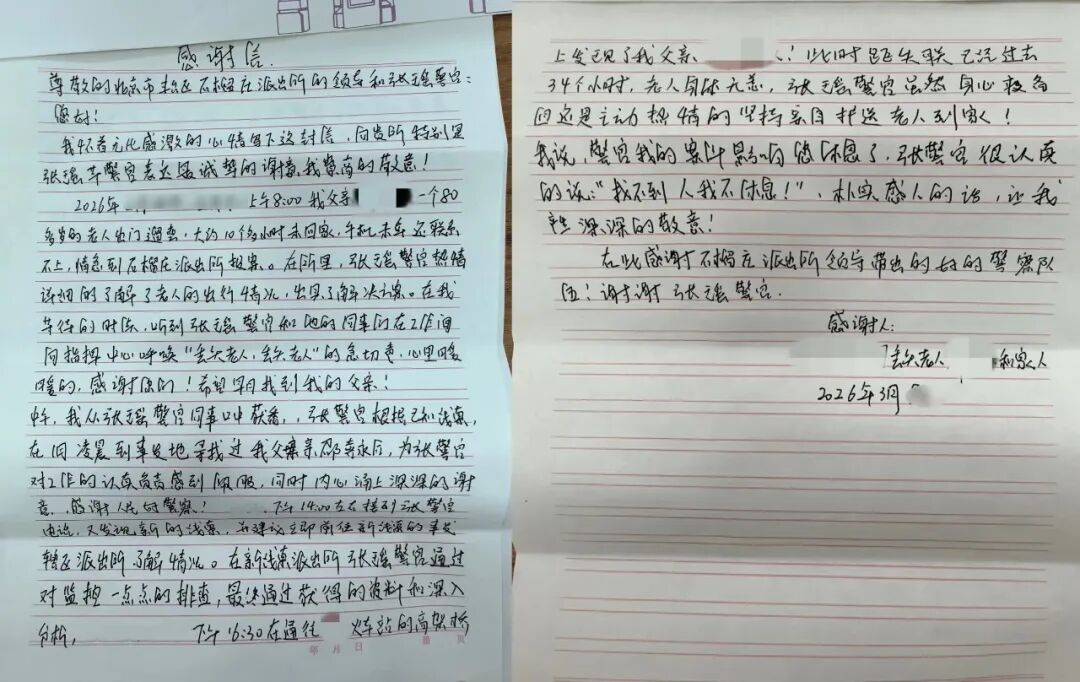 感谢信.
尊敬的北京市丰台区石榴庄派出所的领导和张瑶警官:
您好!
我怀着无比感激的心情写下这封信、向贵所特别是
张瑶等警官表达最诚挚的谢意,我崇高的敬意!
2026年 上午8:00 我父亲 一个80
多岁的老人出门遛弯,大约10个多小时未回家,手机未带 联系
不上,情急到石榴庄派出所报案。在所里,张瑶警官热情
详细的了解了老人的出行情况,出具了解决方案。在我
等待的时候,听到张瑶警官和她的同事们在工作间
向指挥中心呼唤"丢失老人,丢失老人"的急切声,心里暖
暖的,感谢你们!希望早日找到我的父亲!
中午,我从张瑶警官同事口中获悉,张警官根据已知线索,
在 日凌晨到事发地寻找过我父亲 ,为张警官
对工作的认真负责感到佩服,同时内心涌上深深的谢
意、感谢人民的警察! 下午14:00左右接到张警官
电话,又发现新的线索,并建议立即前往新线索的事发
辖区派出所了解情况。在新线索派出所张瑶警官通过
对监控一点点的排查,最终通过获得的资料和深入
分析, 下午16:30在通往 火车站的高架桥
年 月 日 第 页
上发现了我父亲 !此时距失联已经过去
34个小时,老人身体无恙,张瑶警官虽然身心疲惫
但还是主动热情的坚持亲自护送老人到家!
我说,警官我的案件影响您休息了,张警官很认真
的说:"找不到人我不休息!"、朴实感人的话,让我
产生深深的敬意!
在此感谢石榴庄派出所领导带出的好的警察队
伍!谢谢张瑶警官.
感谢人:
丢失老人 和家人
2026年3月